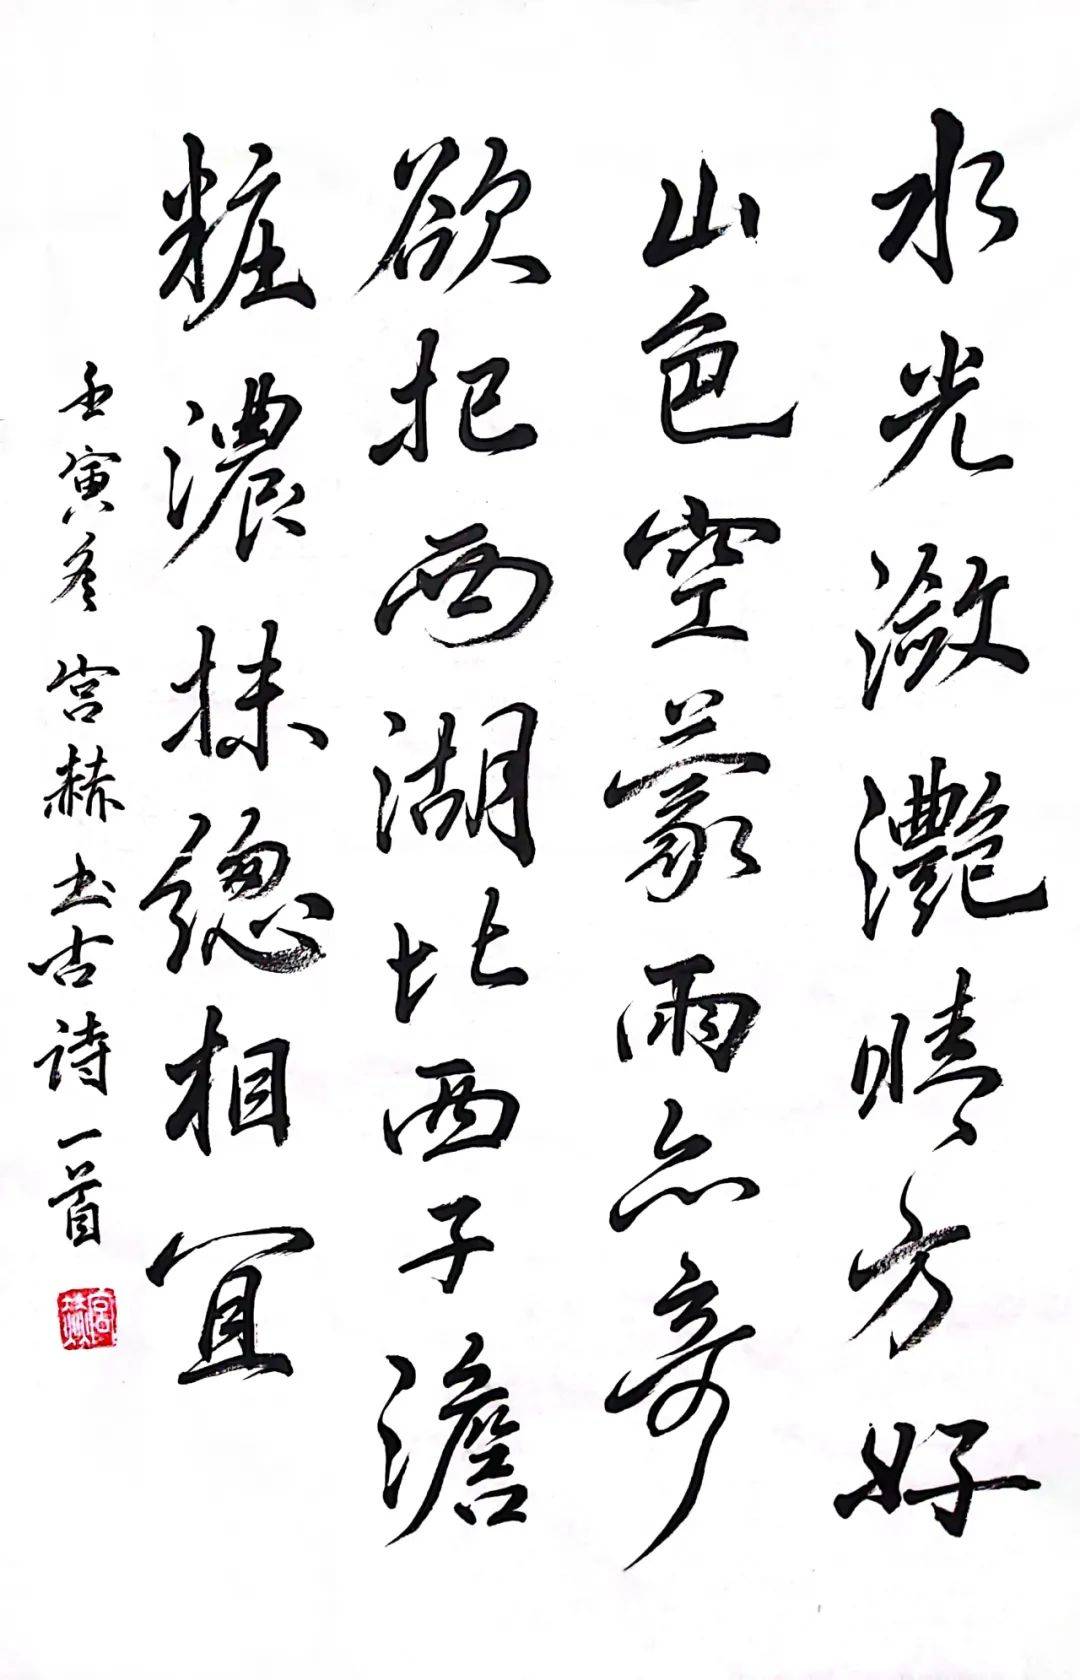 水光潋灔晴方好
山色空蒙雨亦奇
欲把西湖比西子澹
粧濃抹總相宜
壬寅冬 宫赫书古诗一首